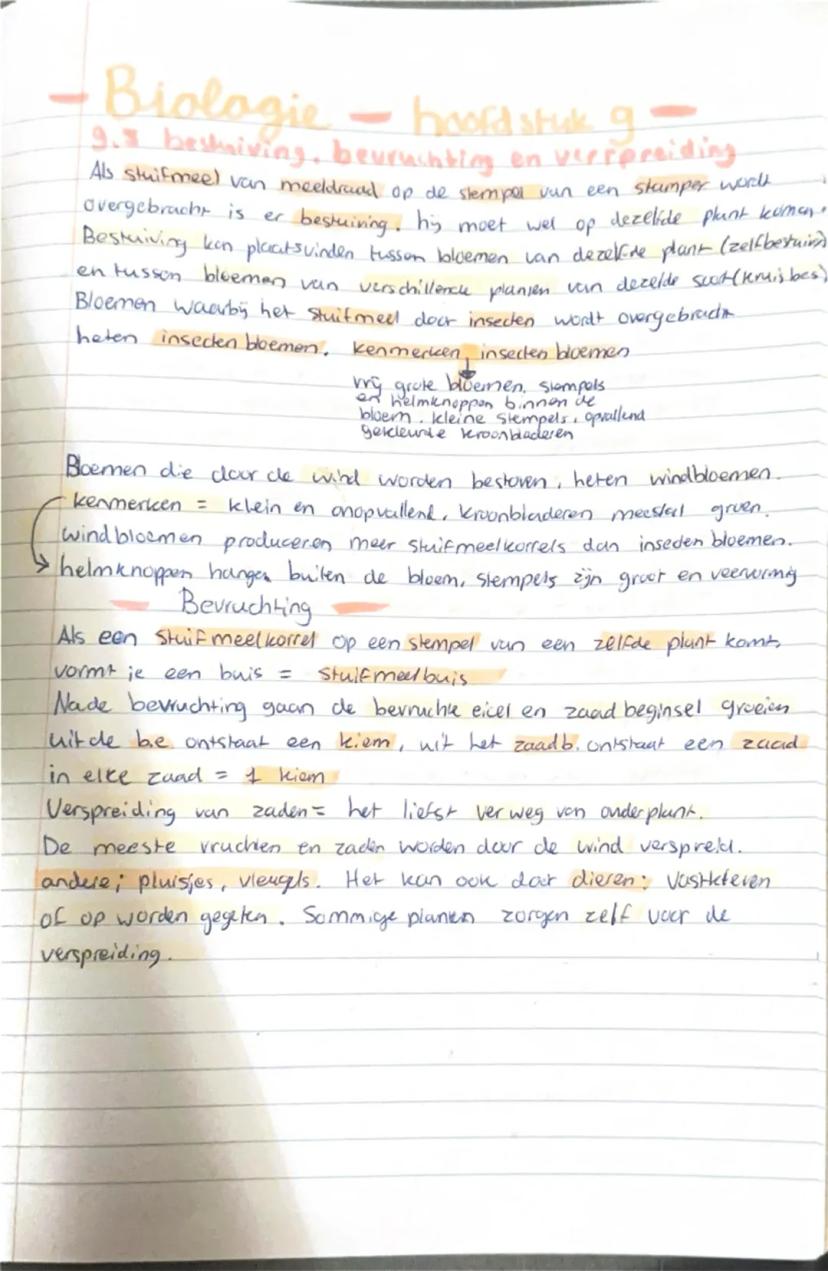 - Biologie - hoofdstuk 9 -
9.3 bestuiving, bevruchting en verspreiding
Als stuifmeel van meeldraad op de stempel van een stamper wordt
overgebracht is er bestuiving. hij moet wel op dezelfde plant komen.
Bestuiving kan plaatsvinden tussen bloemen van dezelfde plant (zelfbestuiv)
en tussen bloemen van verschillende planten van dezelfde soort (kruisbes)
Bloemen waarbij het stuifmeel door insecten wordt overgebracht
heten insecten bloemen. kenmerken insecten bloemen
↓
vrij grote bloemen, stempels
en helmknoppen binnen de
bloem. kleine stempels, opvallend
gekleurde kroonbladeren
Bloemen die door de wind worden bestoven, heten windbloemen.
kenmerken = klein en onopvallend, kroonbladeren meestal groen.
windbloemen produceren meer stuifmeelkorrels dan insecten bloemen.
→ helmknoppen hangen buiten de bloem, stempels zijn groot en veervormig
- Bevruchting -
Als een stuifmeelkorrel op een stempel van een zelfde plant komt,
vormt je een buis = stuifmeelbuis
Na de bevruchting gaan de bevruchte eicel en zaadbeginsel groeien
uit de b.e. ontstaat een kiem, uit het zaadb. ontstaat een zaad
in elke zaad = 1 kiem
Verspreiding van zaden = het liefst ver weg van ouderplant.
De meeste vruchten en zaden worden door de wind verspreid.
andere; pluisjes, vleugels. Het kan ook door dieren: vastkleven
of op worden gegeten. Sommige planten zorgen zelf voor de
verspreiding.